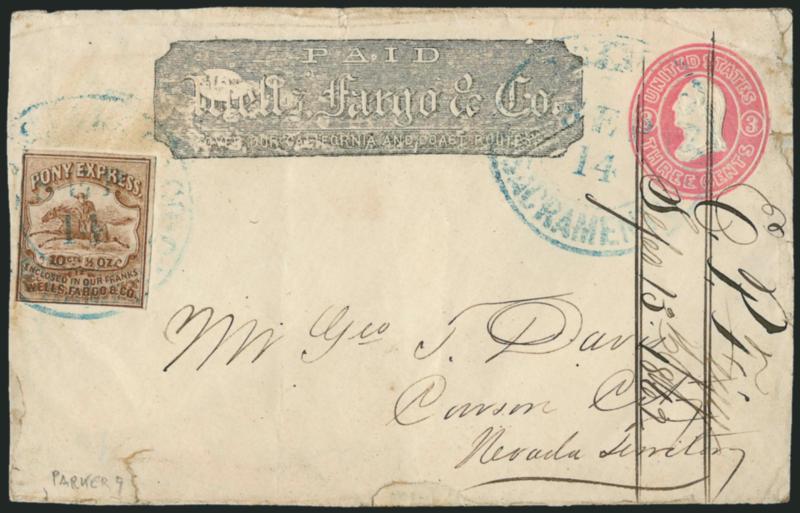 PAID
Wells, Fargo & Co.
OVER OUR CALIFORNIA AND COAST ROUTES
UNITED STATES
3 3
THREE CENTS
14
SACRAMENTO
PONY EXPRESS
14
10 CTS ½ OZ.
ENCLOSED IN OUR FRANKS
WELLS, FARGO & CO.
Mr Geo T. Davis
Carson City
Nevada Territory
Sep 15. 1862
PARKER 9